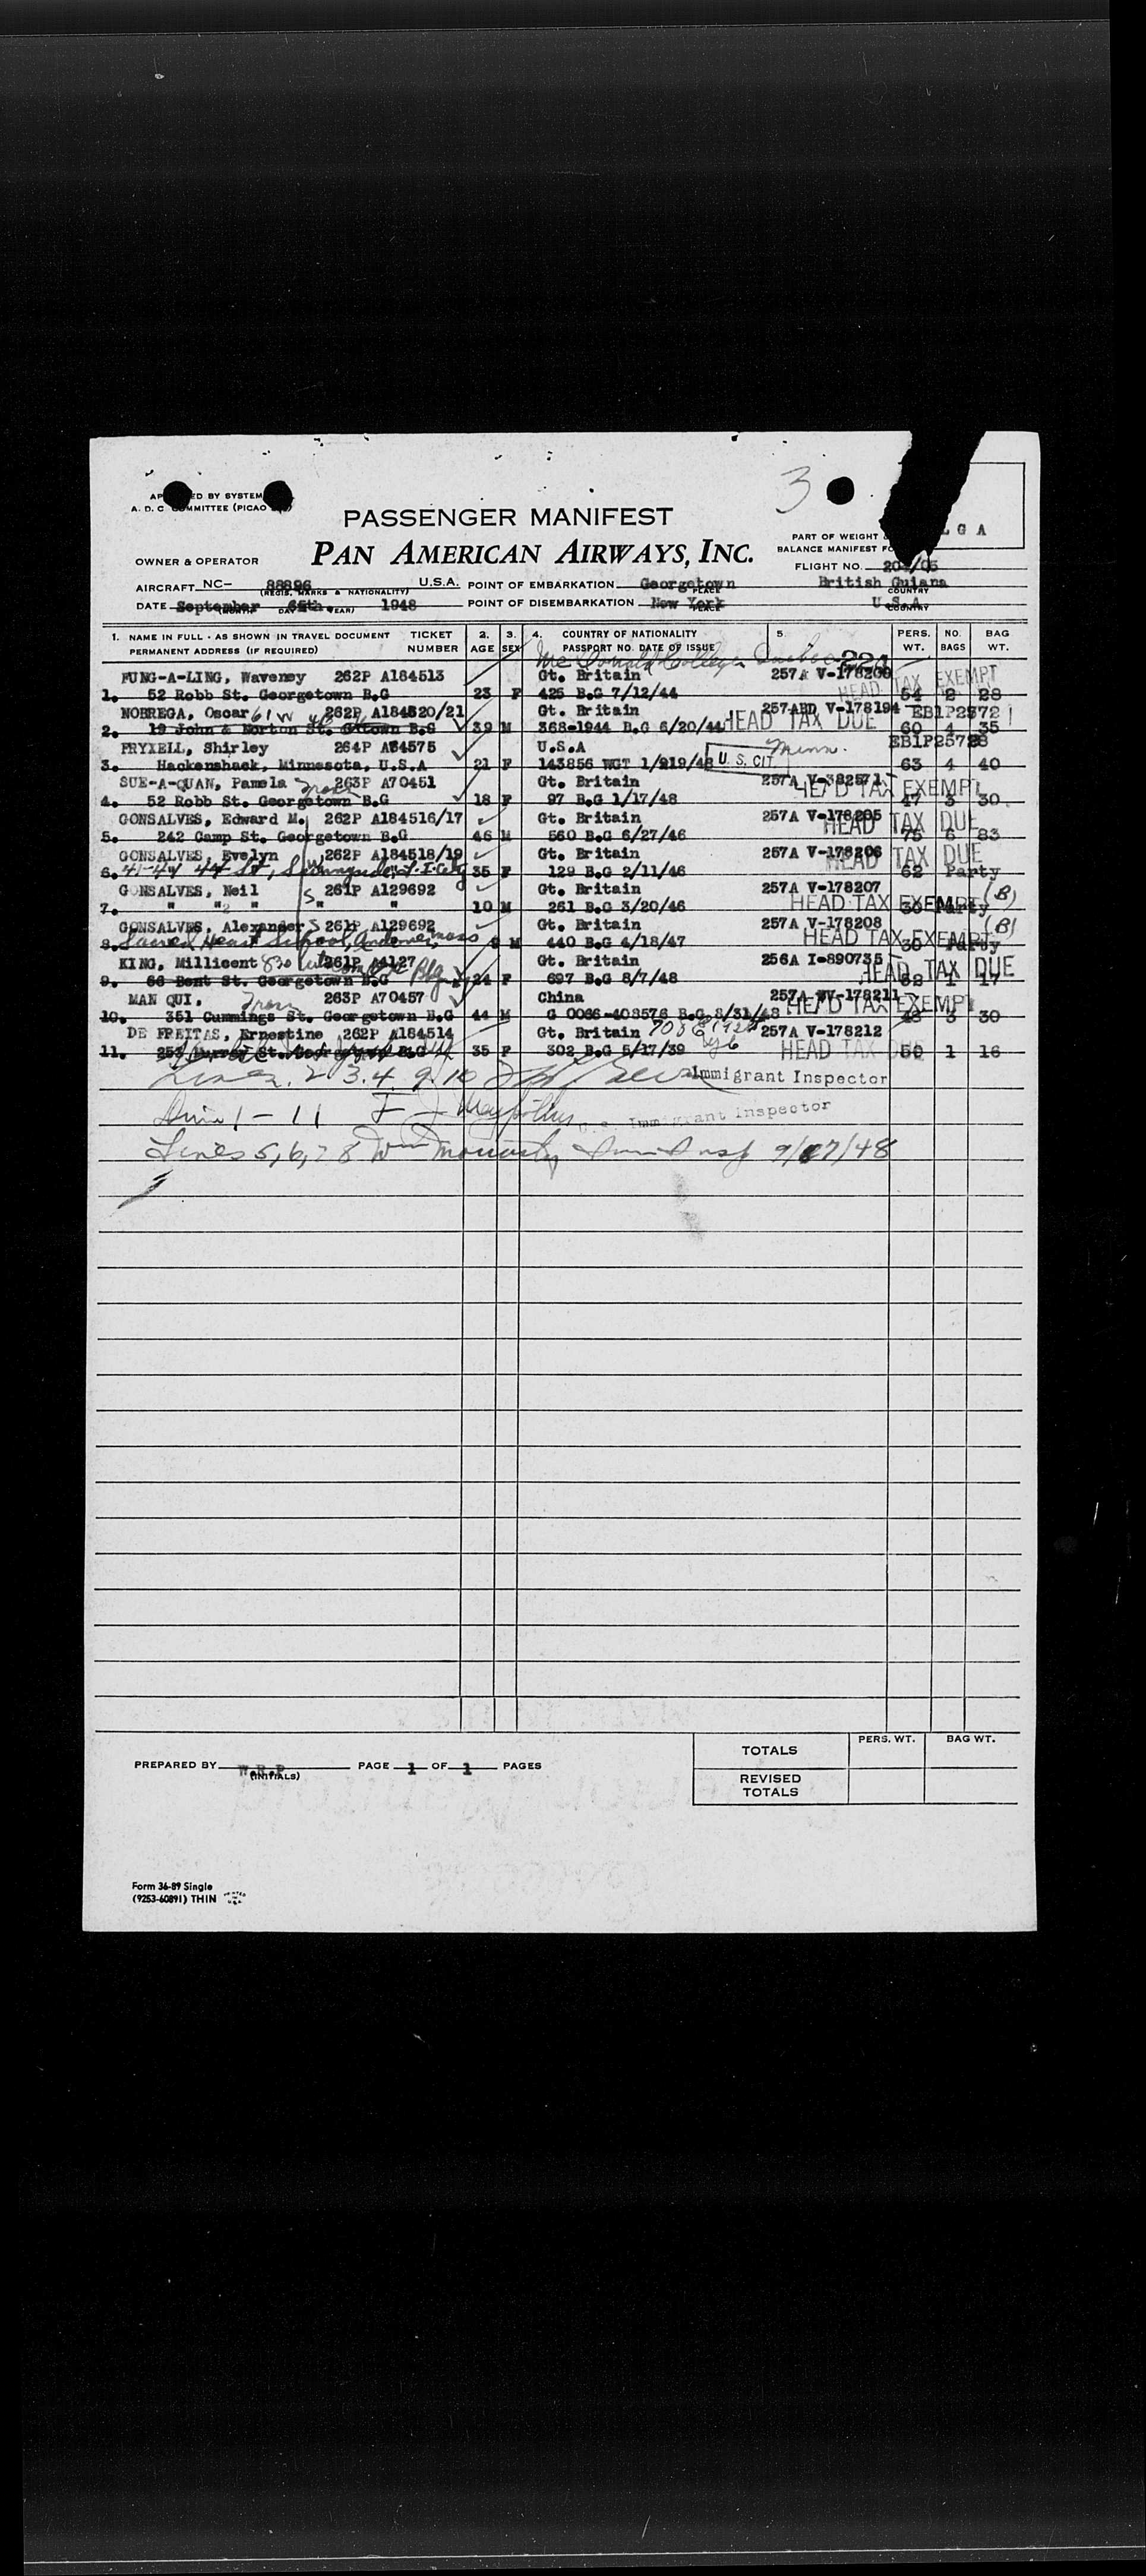 3
APPROVED BY SYSTEM
A. D. C. COMMITTEE (PICAO
L G A
PASSENGER MANIFEST
PART OF WEIGHT &
PAN AMERICAN AIRWAYS, INC.
BALANCE MANIFEST FO
OWNER & OPERATOR
FLIGHT NO.
AIRCRAFT NC- 88896 U.S.A. POINT OF EMBARKATION Georgetown British Guiana
(REGIS. MARKS & NATIONALITY) PLACE COUNTRY
DATE September 1948 POINT OF DISEMBARKATION New York U.S.A
(MONTH DAY YEAR) PLACE COUNTRY
1. NAME IN FULL - AS SHOWN IN TRAVEL DOCUMENT TICKET 2. 3. 4. COUNTRY OF NATIONALITY 5. PERS. NO. BAG
PERMANENT ADDRESS (IF REQUIRED) NUMBER AGE SEX PASSPORT NO. DATE OF ISSUE WT. BAGS WT.
Mc Donald College Quebec 224
FUNG-A-LING, Waveney 262P A184513 Gt. Britain 257A V-178209 HEAD TAX EXEMPT
1. 52 Robb St. Georgetown B.G 23 F 425 B.G 7/12/44 54 2 28
NOBREGA, Oscar 61 W 262P A184520/21 Gt. Britain 257ABD V-178194 EB1P2572
2. 19 John & Norton St. Gtown B.G 39 M 368-1944 B.G 6/20/44 HEAD TAX DUE 60 4 35
FRYXELL, Shirley 264P A84575 U.S.A Minn. EB1P25728
3. Hackenshack, Minnesota, U.S.A 21 F 143856 WGT 1/219/48 U. S. CIT. 63 4 40
SUE-A-QUAN, Pamela Trans 263P A70451 Gt. Britain 257A V-382571 HEAD TAX EXEMPT
4. 52 Robb St. Georgetown B.G 18 F 97 B.G 1/17/48 47 3 30
GONSALVES, Edward M. 262P A184516/17 Gt. Britain 257A V-178205 HEAD TAX DUE
5. 242 Camp St. Georgetown B.G 46 M 560 B.G 6/27/46 75 6 83
GONSALVES, Evelyn W 262P A184518/19 Gt. Britain 257A V-178206 HEAD TAX DUE
6. 41-44 44 St, Sunnyside, L.I. City 35 F 129 B.G 2/11/46 62 Party
GONSALVES, Neil S 261P A129692 Gt. Britain 257A V-178207 HEAD TAX EXEMPT (B)
7. " " " " " 10 M 261 B.G 3/20/46 30 Party
GONSALVES, Alexander S 261P A129692 Gt. Britain 257A V-178208 HEAD TAX EXEMPT (B)
8. Sacred Heart School, Andover, Mass 9 M 440 B.G 4/18/47 30 Party
KING, Millicent 830 261P A4127 Gt. Britain 256A I-890735 HEAD TAX DUE
9. 66 Bent St. Georgetown B.G 24 F 697 B.G 8/7/48 62 1 17
MAN QUI, Trans 263P A70457 China 257A V-178211 HEAD TAX EXEMPT
10. 351 Cummings St. Georgetown B.G 44 M G 0066-408576 B.G 8/31/48 48 3 30
DE FREITAS, Ernestine 262P A184514 Gt. Britain 257A V-178212
11. 35 F 302 B.G 5/17/39 HEAD TAX DUE 50 1 16
Lines. 2. 3. 4. 9. 10 Immigrant Inspector
1 - 11 U.S. Immigrant Inspector
Lines 5, 6, 7 8 Wm Moriarty Imm Insp 9/17/48
PERS. WT. BAG WT.
TOTALS
PREPARED BY W.R.P PAGE 1 OF 1 PAGES
(INITIALS)
REVISED
TOTALS
Form 36-89 Single
(9253-60891) THIN PRINTED
IN
U.S.A.